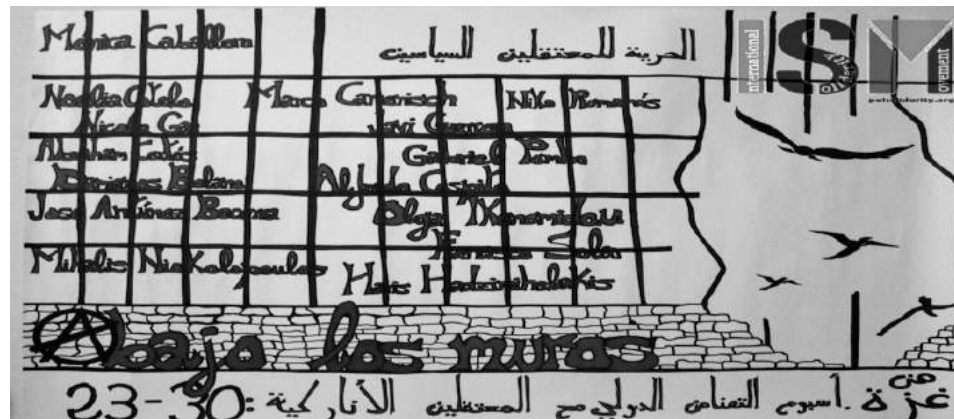 Mónica Caballero
الحرية للمعتقلين السياسيين
International
Solidarity
Movement
palsolidarity.org
Noelia Cotelo
Marco Camenisch
Niko Romanós
Nicola Gai
Javi Guerra
Gabriel Pombo
Alfredo Cospito
Jose Antúnez Becerra
Olga IKonomidou
Francisco Solar
Mihalis NicKolopoulos
Haris Hadzimihelakis
Abajo los muros
من
غزة. أسبوع التضامن الدولي مع المعتقلين الأناركية: 23-30